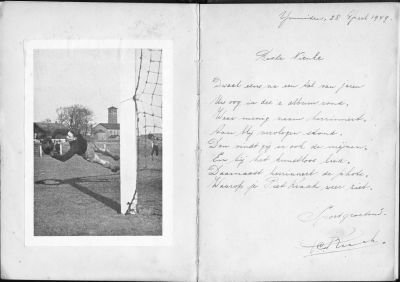 IJmuiden, 28 April 1949.
Beste Nienke
Dwaalt eens na een tal van jaren
Uw oog in dit album rond,
Waar menig naam herinnert,
Aan blij vervlogen stond.
Dan vindt gij er ook de mijnen,
En bij het kunstloos lied.
Daarnaast herinnert de photo,
Waarop je Piet Kraak weer ziet.
Sportgroetend.
P. Kraak.